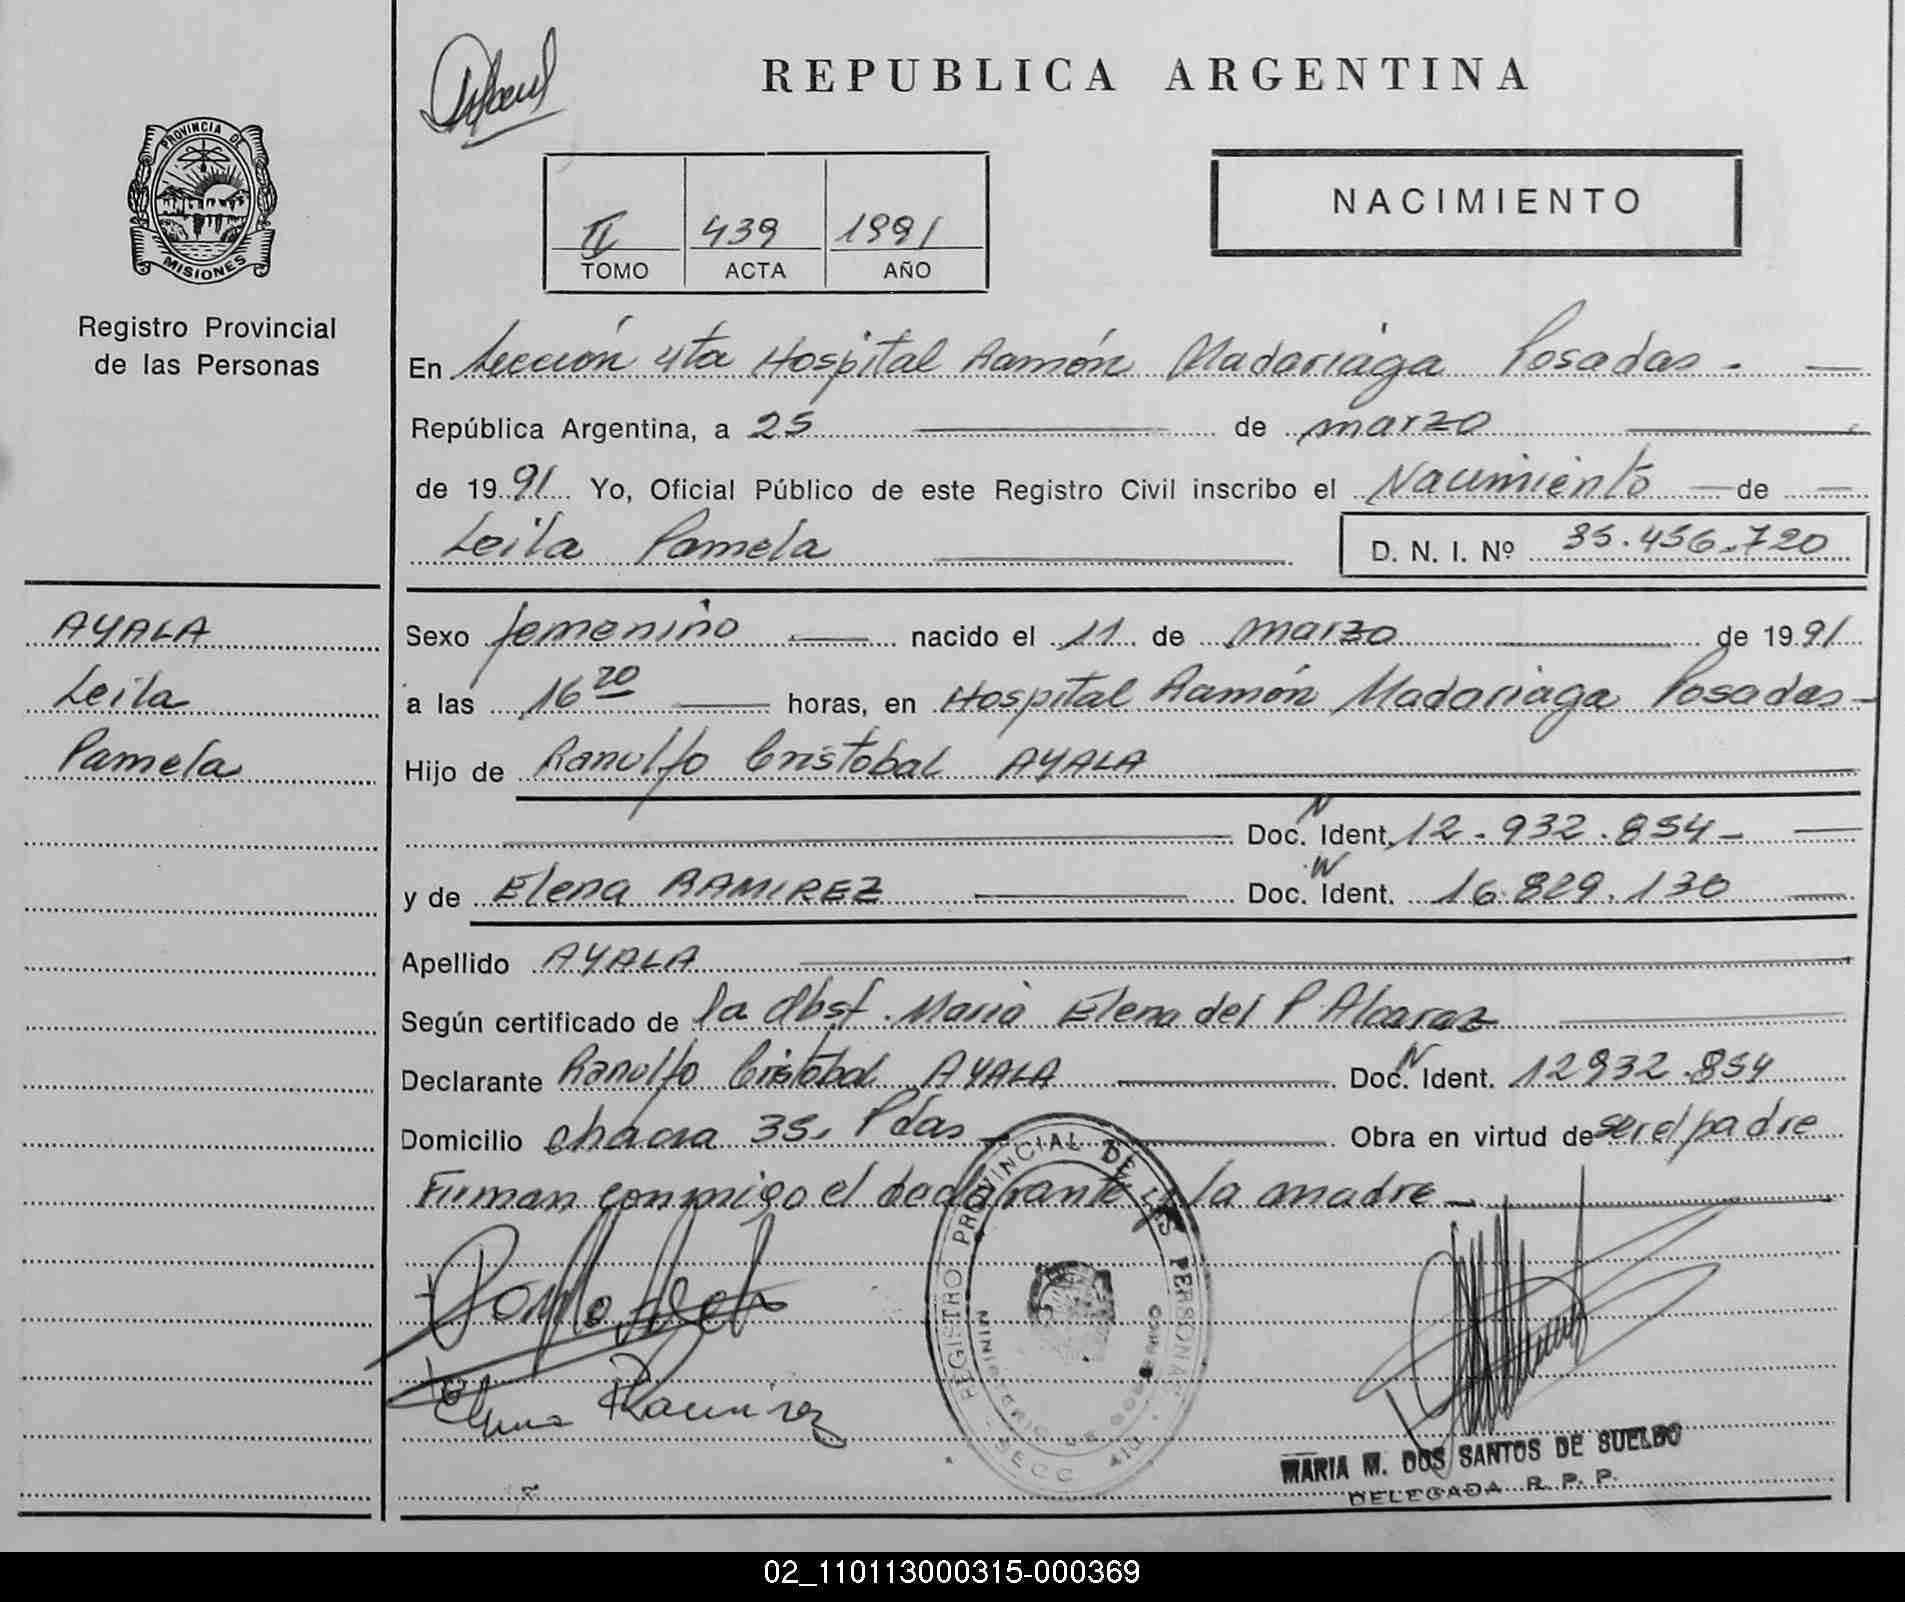 REPUBLICA ARGENTINA
PROVINCIA DE
MISIONES
Registro Provincial
de las Personas
II 439 1991
TOMO ACTA AÑO
NACIMIENTO
En Sección 4ta Hospital Ramón Madariaga Posadas. —
República Argentina, a 25 — de marzo —
de 1991 Yo, Oficial Público de este Registro Civil inscribo el Nacimiento — de —
Leila Pamela —
D. N. I. Nº 35.456.720
AYALA
Leila
Pamela
Sexo femenino — nacido el 11 de marzo — de 1991
a las 16 20 — horas, en Hospital Ramón Madariaga Posadas —
Hijo de Ranulfo Cristobal AYALA —
— Doc. N Ident. 12.932.854 —
y de Elena RAMIREZ — Doc. N Ident. 16.829.130 —
Apellido AYALA —
Según certificado de la Obst. Maria Elena del P Alcaraz —
Declarante Ranulfo Cristobal AYALA — Doc. N Ident. 12932.854
Domicilio chacra 35, Pdas — Obra en virtud de ser el padre
Firman conmigo el declarante y la madre —
Elena Ramirez
REGISTRO PROVINCIAL DE LAS PERSONAS
SECC
MARIA M. DOS SANTOS DE SUELDO
DELEGADA R. P. P.
02_110113000315-000369